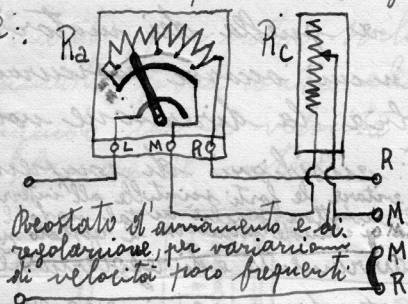 Ra
Rc
L M R
R
M
M
R
Reostato d'avviamento e di
regolazione, per variazioni
di velocità poco frequenti